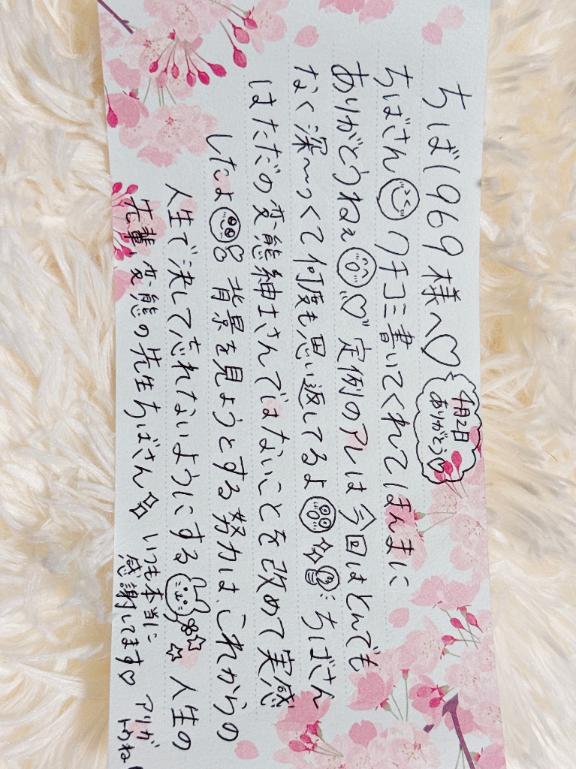 ちば1969様へ♡
4月2日
ありがとう♡
ちばさん クチコミ書いてくれてほんまに
ありがとうねぇ ♡ 定例のアレは今回はとんでも
なく深〜くって何度も思い返してるよ ちばさん
はただの変態紳士さんではないことを改めて実感
したよ 背景を見ようとする努力は、これからの
人生で決して忘れないようにする ☆☆ 人生の
先輩、変態の先生ちばさん いつも本当に
感謝してます♡ アリガ